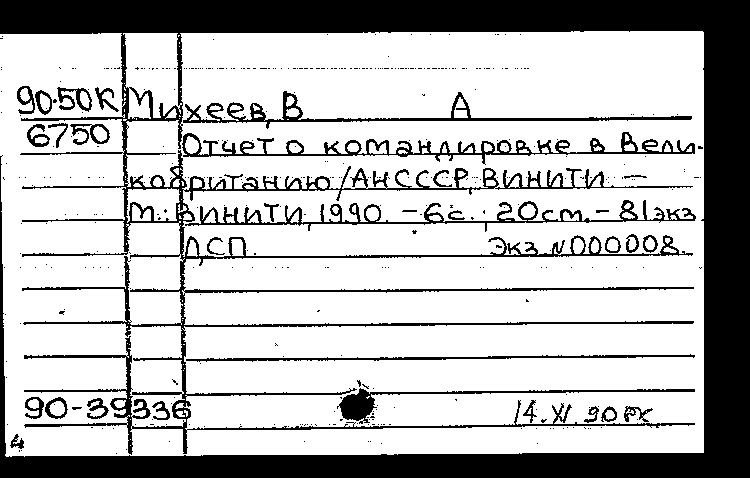 90-50К Михеев, В А
6750 Отчет о командировке в Вели-
кобританию/АН СССР, ВИНИТИ. —
М.: ВИНИТИ, 1990. - 6с.; 20см. - 81экз.
ДСП. Экз. N000008.
90-39336 14.XI.90
4